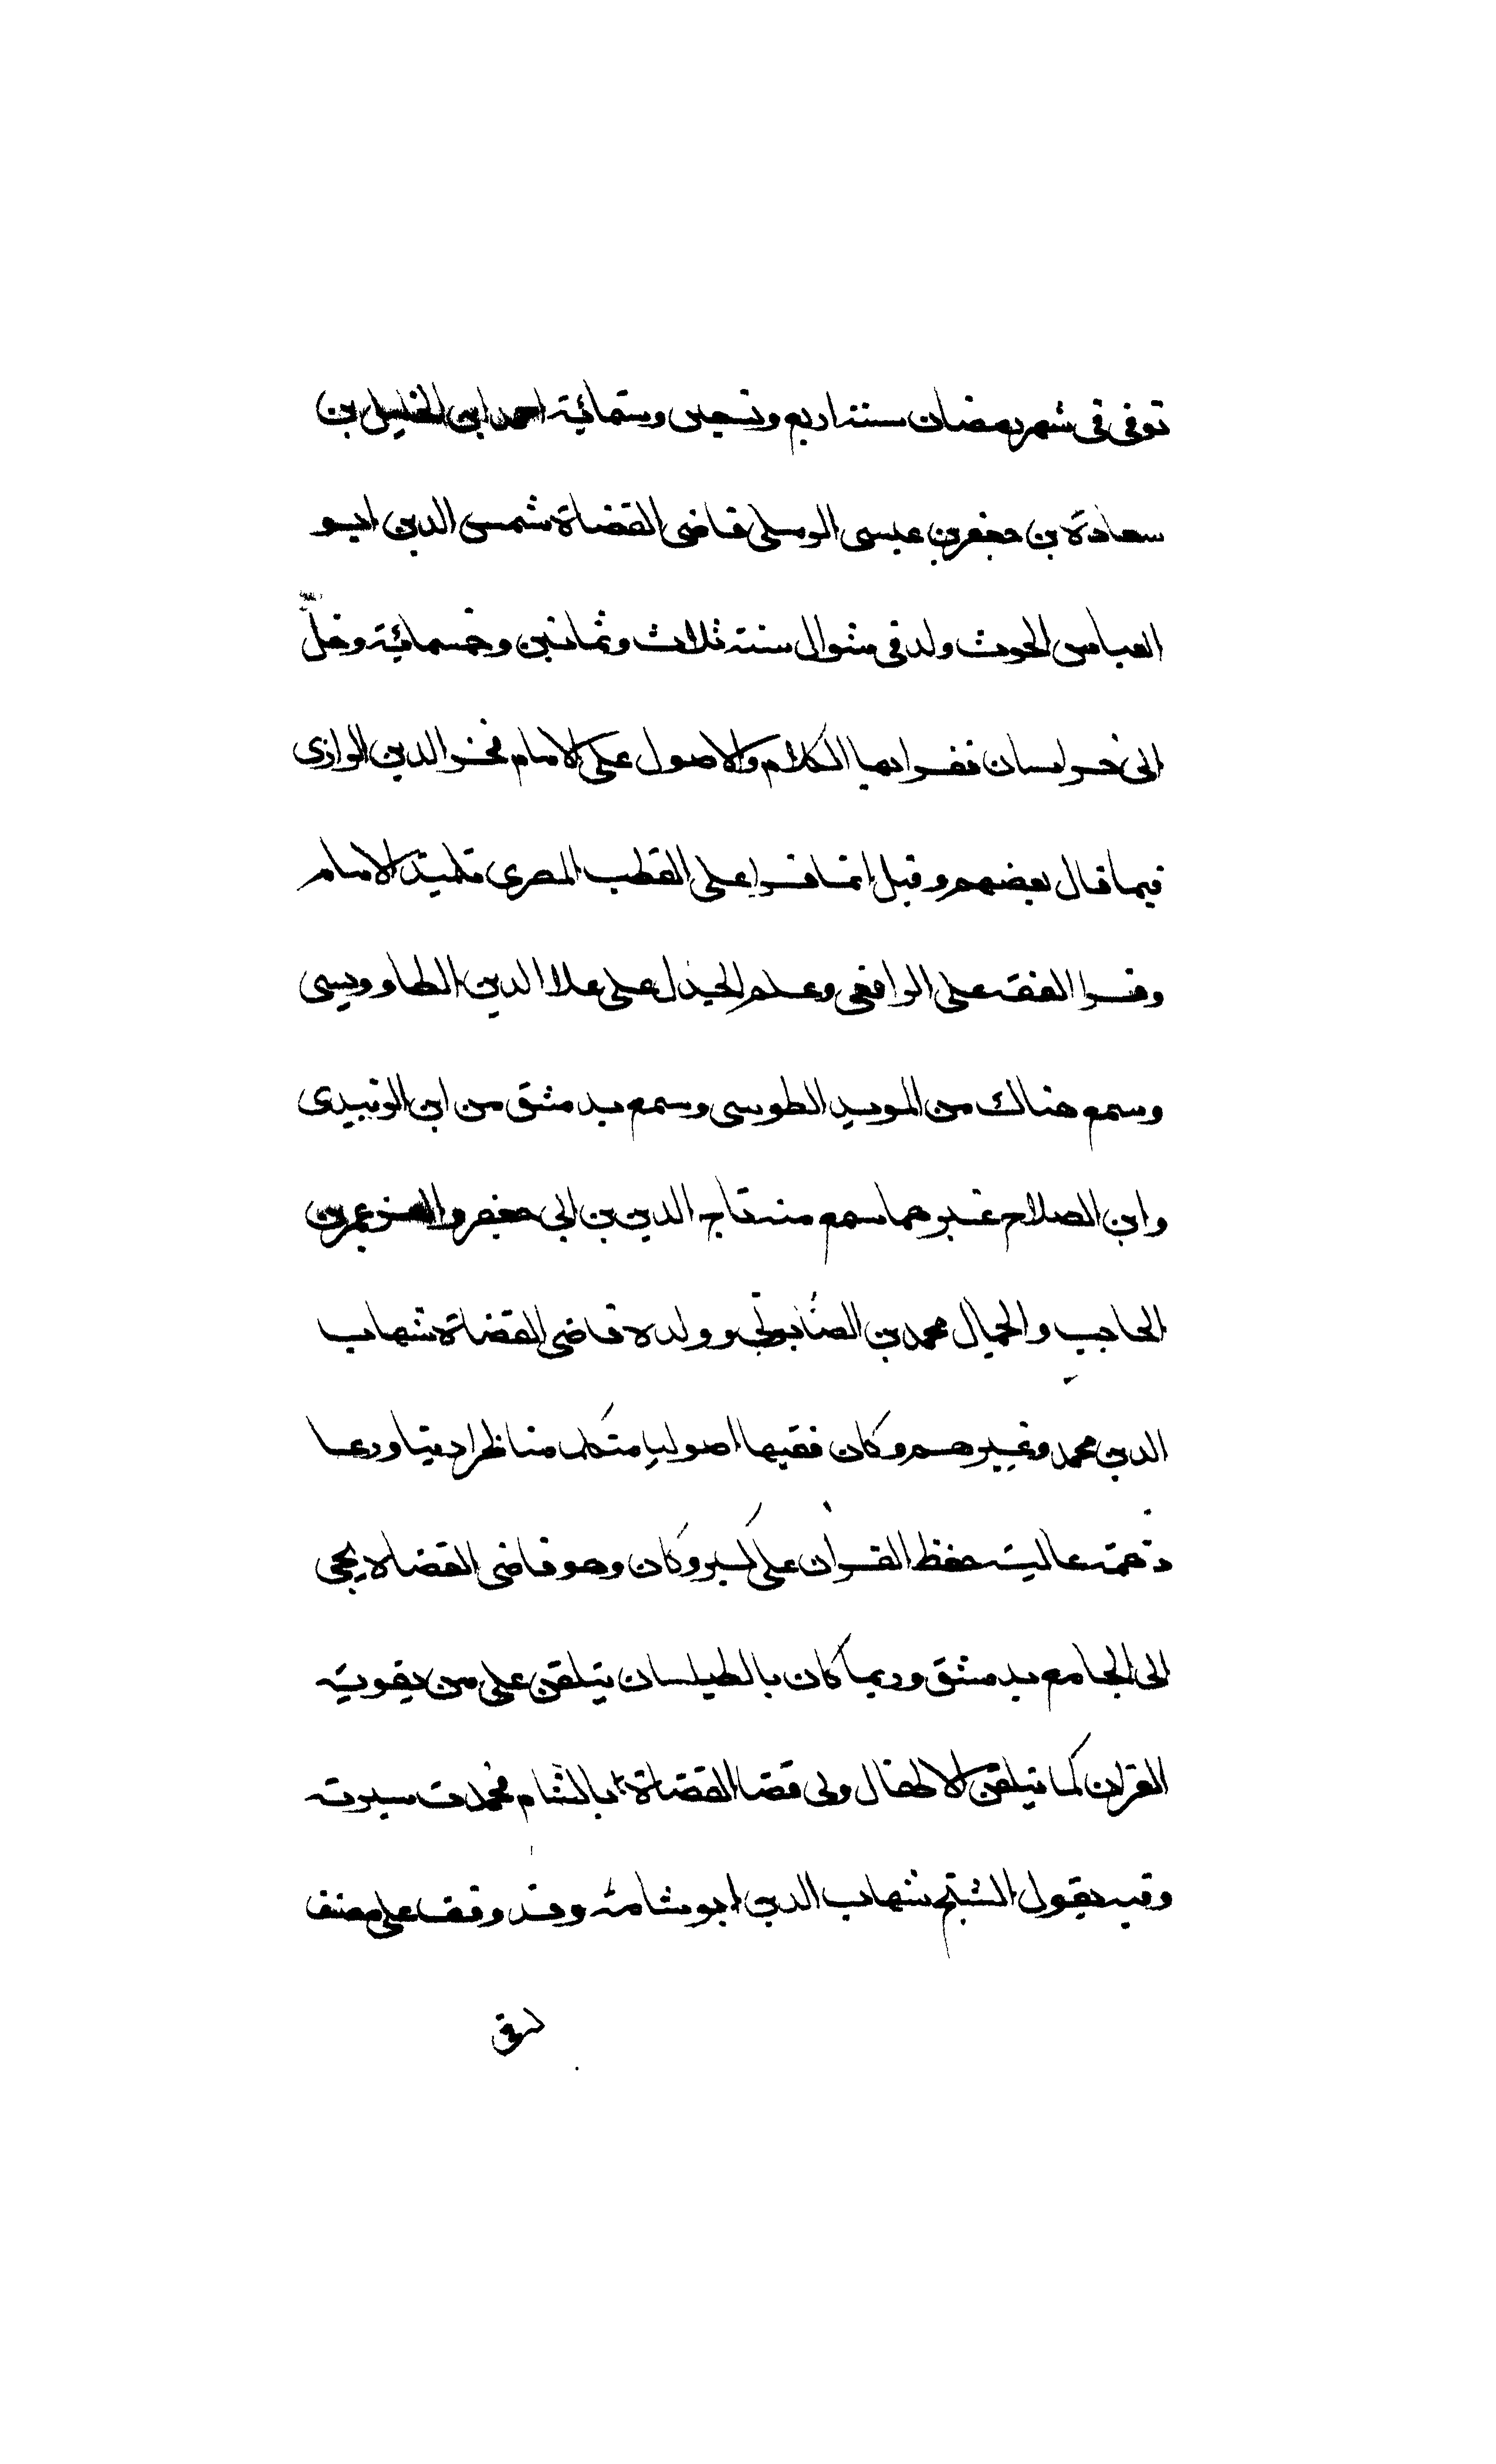 توفى فى شهر رمضان سنة اربع وتسعين وستمائة احمد ابن الخليل بن
سعادة بن جعفر بن عيسى الوسلى قاضى القضاة شمس الدين ابو
العباس الخوى ولد فى شوال سنة ثلاث وثمانين وخمسمائة ودخل
الى خراسان فقرا بها الكلام والاصول على الامام فخر الدين الرازى
فيما قال بعضهم وقيل انما قرا على القطب المصرى تلميذ الامام
وقرا الفقه على الرافعى وعلم الجدل على علا الدين الطاووسى
وسمع هناك من المويد الطوسى وسمع بدمشق من ابن الزبيدى
وابن الصلاح غيرهما سمع منه تاج الدين بن ابى جعفر والعز عمر بن
الحاجب والجمال محمد بن الصابونى وولده قاضى القضاة شهاب
الدين محمد وغيرهم وكان فقيها اصوليا متكلما مناظرا دينا ورعا
ذ همة عالية حفظ القران على كبر وكان وهو قاضى القضاة يجى
الى الجامع بدمشق وربما كان بالطيلسان يتلقن على من يقويه
القران كما يتلقن الاطفال ولى قضا القضاة بالشام فحمدت سيرته
وفيه يقول الشيخ شهاب الدين ابو شامة وقد وقف على مصنف